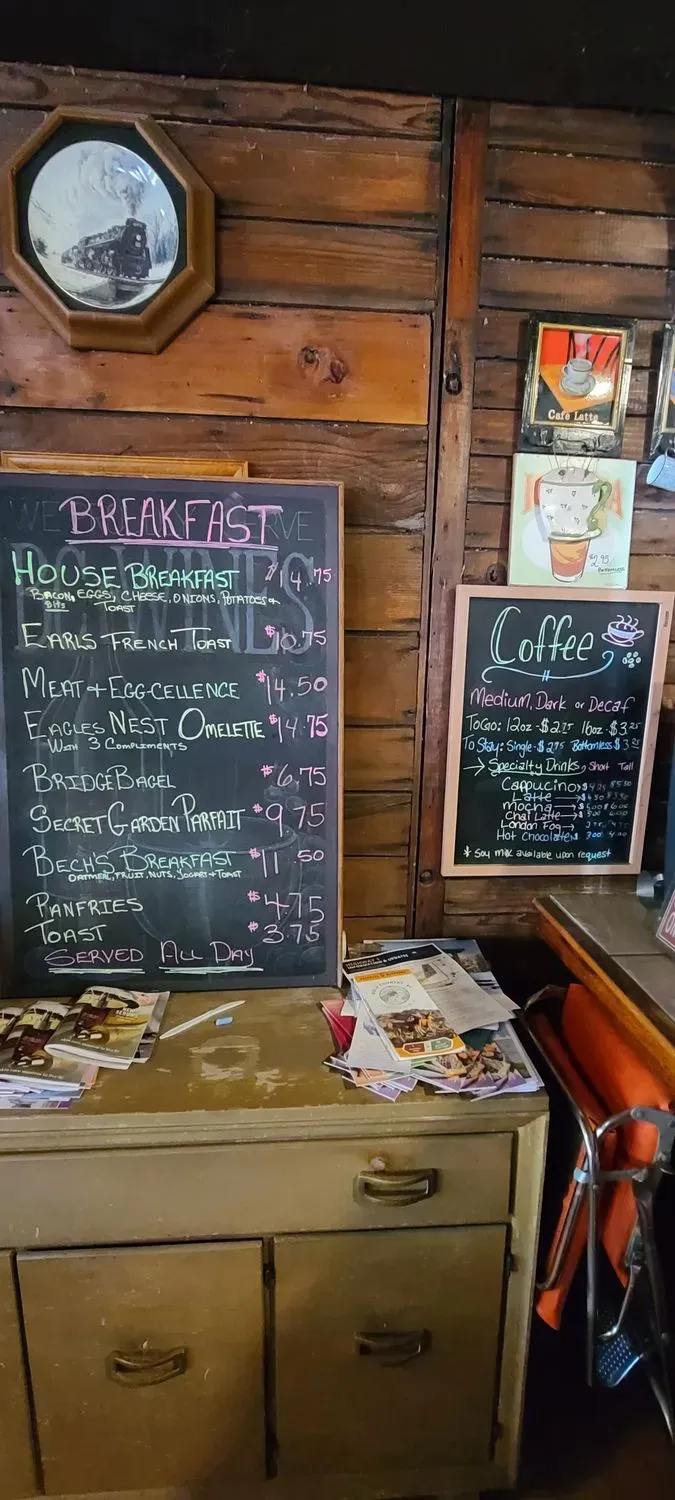 WE SERVE
BREAKFAST
BC WINES
HOUSE BREAKFAST $14.75
BACON, EGGS, CHEESE, ONIONS, POTATOES +
BITS TOAST
EARLS FRENCH TOAST $10.75
MEAT + EGG-CELLENCE $14.50
EAGLES NEST OMELETTE $14.75
WITH 3 COMPLIMENTS
BRIDGE BAGEL $6.75
SECRET GARDEN PARFAIT $9.75
BECH'S BREAKFAST $11.50
OATMEAL, FRUIT, NUTS, YOGART + TOAST
PANFRIES $4.75
TOAST $3.75
SERVED ALL DAY
Cafe Latte
$2.95
Bottomless
Coffee
Medium, Dark or Decaf
To Go: 12oz-$2.75 16oz-$3.25
To Stay: Single-$2.75 Bottomless $3.25
→ Specialty Drinks, Short Tall
Cappucino
Latte
mocha
Chai Latte
London Fog
Hot Chocolate
* Soy milk available upon request